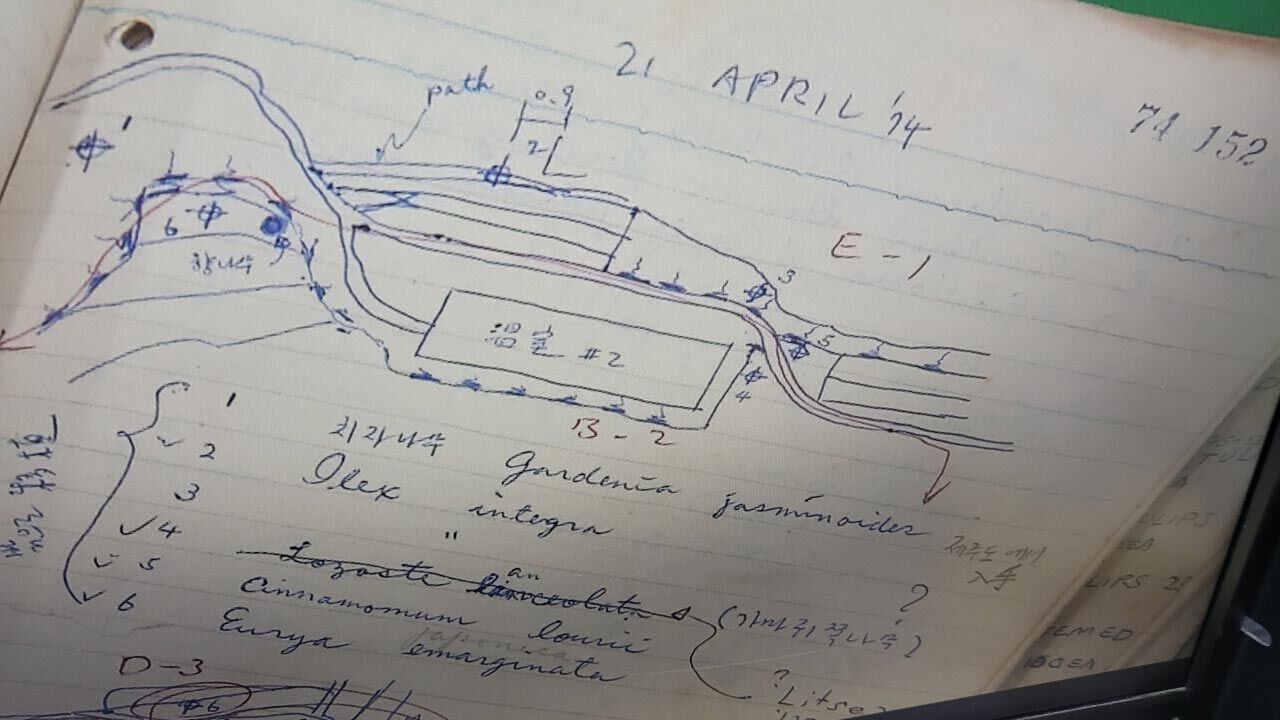 21 APRIL '74
74 152
path
0.9
2
1
6
향나무
E-1
3
5
온실 #2
4
B-2
1 치자나무 Gardenia jasminoides
✓ 2 Ilex integra
3 "
제주도에서
入手
✓ 4 Lozoste lanceolata ?
an
(가마귀쪽나무)
✓ 5 Cinnamomum lourii
✓ 6 Eurya emarginata
japonica
?
Litsea
D-3
6